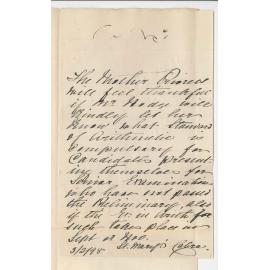 The Mother Prioress
will feel thankful
if Mr Moody will
kindly let her
know what Standard
of Arithmetic is
compulsory for
Candidates present
ing themselves for
Senior Examination
who have not passed
the Preliminary, also
if the in Arith. for
such takes place in
Sept or Nov.
St. Mary's Cabra.
3/2/98